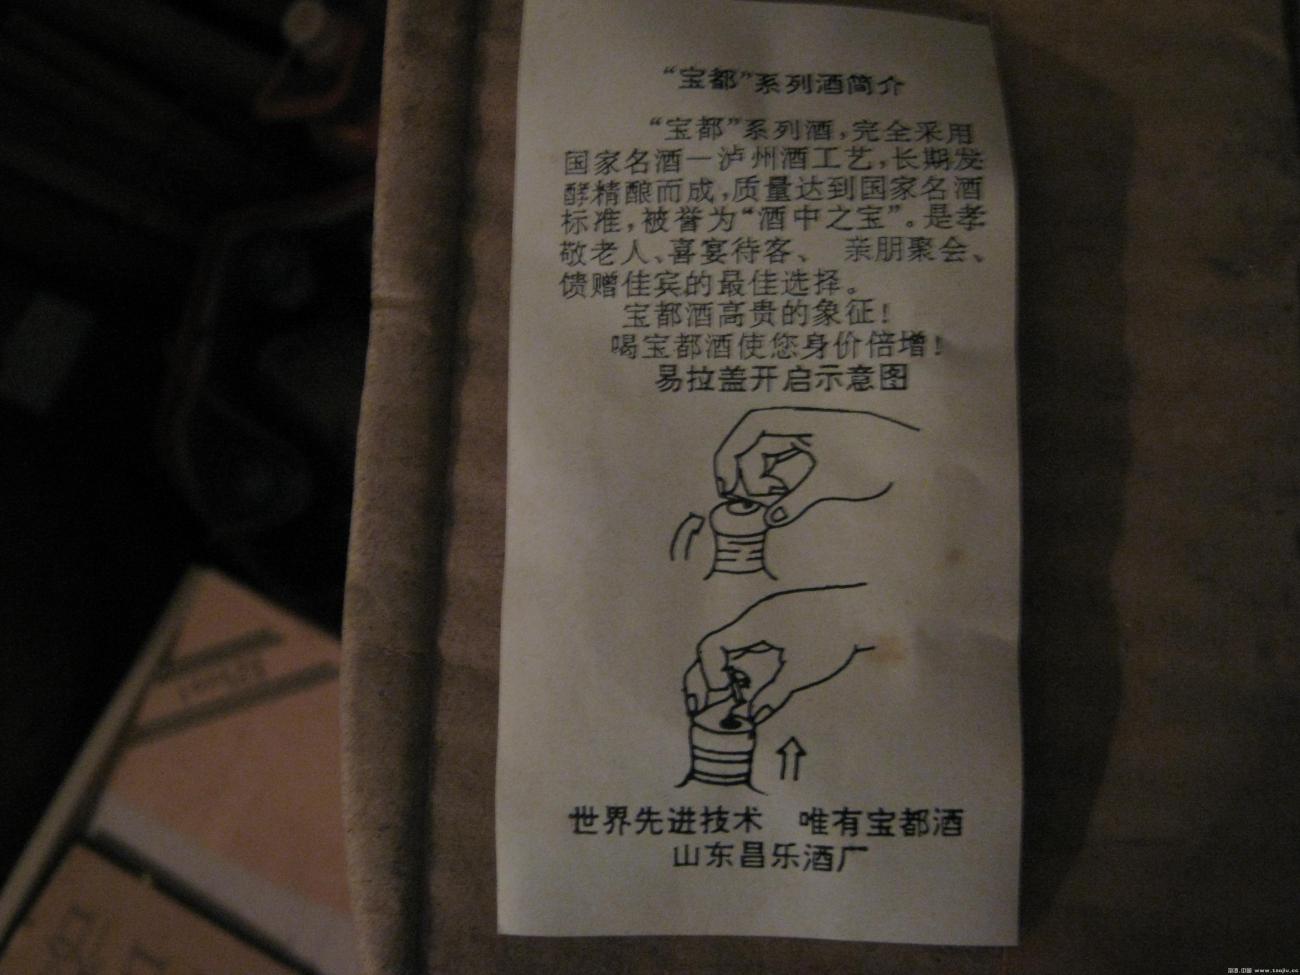 “宝都”系列酒简介
“宝都”系列酒,完全采用
国家名酒—泸州酒工艺,长期发
酵精酿而成,质量达到国家名酒
标准,被誉为“酒中之宝”。是孝
敬老人、喜宴待客、 亲朋聚会、
馈赠佳宾的最佳选择。
宝都酒高贵的象征!
喝宝都酒使您身价倍增!
易拉盖开启示意图
世界先进技术 唯有宝都酒
山东昌乐酒厂
www.taojiu.cc